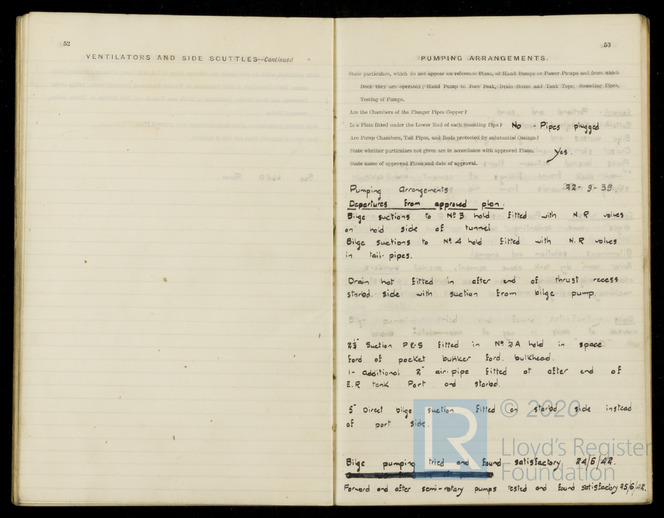 52
VENTILATORS AND SIDE SCUTTLES—Continued
53
PUMPING ARRANGEMENTS.
State particulars, which do not appear on reference Plans, of Hand Pumps or Power Pumps and from which
Deck they are operated; Hand Pump to Fore Peak, Drain Stores and Tank Tops; Sounding Pipes,
Testing of Pumps.
Are the Chambers of the Plunger Pipes Copper?
Is a Plate fitted under the Lower End of each Sounding Pipe? No - Pipes plugged
Are Pump Chambers, Tail Pipes, and Rods protected by substantial Casings?
State whether particulars not given are in accordance with approved Plans. Yes
State name of approved Plans and date of approval.
Pumping Arrangements 22-9-39
Departures from approved plan.
Bilge suctions to Nº 3 hold fitted with N.R valves
on hold side of tunnel.
Bilge suctions to Nº 4 hold fitted with N.R valves
in tail-pipes.
Drain hat fitted in after end of thrust recess
starbd. side with suction from bilge pump.
2½" Suction P & S fitted in Nº 2A hold in space
ford of pocket bunker ford. bulkhead.
1- additional 2" air-pipe fitted at after end of
E.R tank Port and starbd.
5" Direct bilge suction fitted on starbd. side instead
of port side.
Bilge pumping tried and found satisfactory 24/6/42.
Forward and after semi-rotary pumps tested and found satisfactory 25/6/42.
LR
© 2020
Lloyd's Register
Foundation